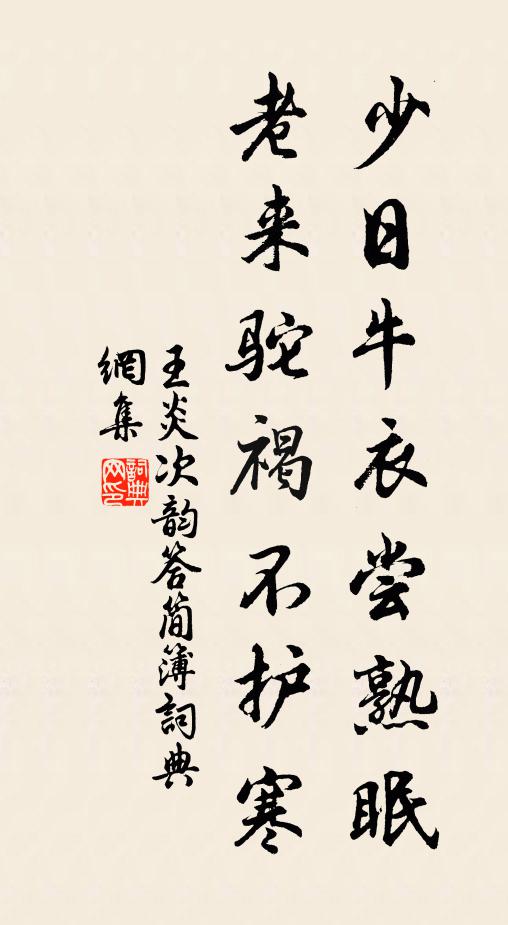 少日牛衣尝熟眠
老来驼褐不护寒
王炎次韵答简簿詞典
網集
詞典
网印